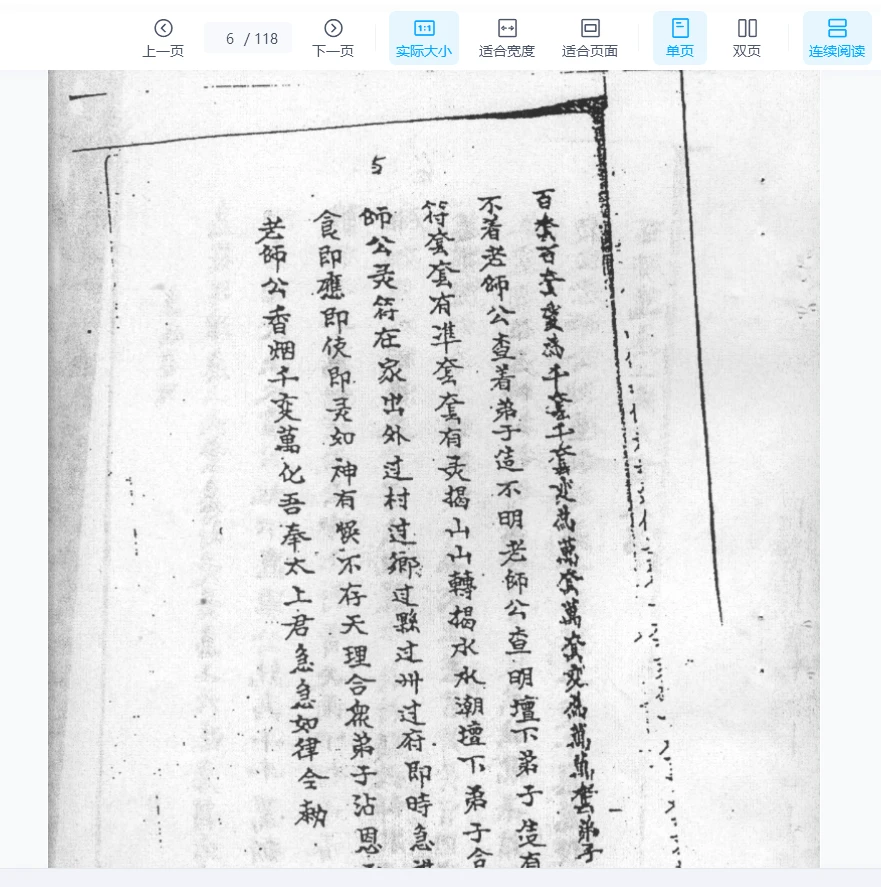 上一页
6 / 118
下一页
1:1
实际大小
适合宽度
适合页面
单页
双页
连续阅读
5
百套百套变為千套千套变為萬套萬套变為萬萬套弟子
不着老師公查着弟子造不明老師公查明壇下弟子造有
符套套有準套套有灵揭山山轉揭水水潮壇下弟子合
師公灵符在家出外过村过鄉过縣过州过府即時急
食即應即使即灵如神有悞不存天理合衆弟子沾恩
老師公香烟千变萬化吾奉太上君急急如律令勅